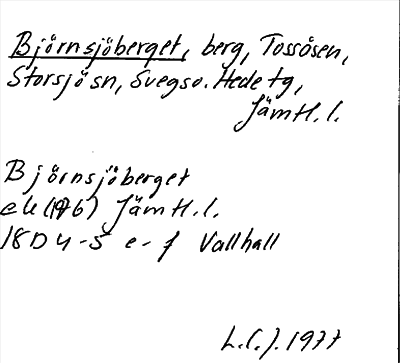 Björnsjöberget, berg, Tossåsen,
Storsjö sn, Svegs o. Hede tg,
Jämtl. l.
Björnsjöberget
ek (196) Jämtl. l.
18D 4-5 e-f Vallhall
L.C.J. 1977